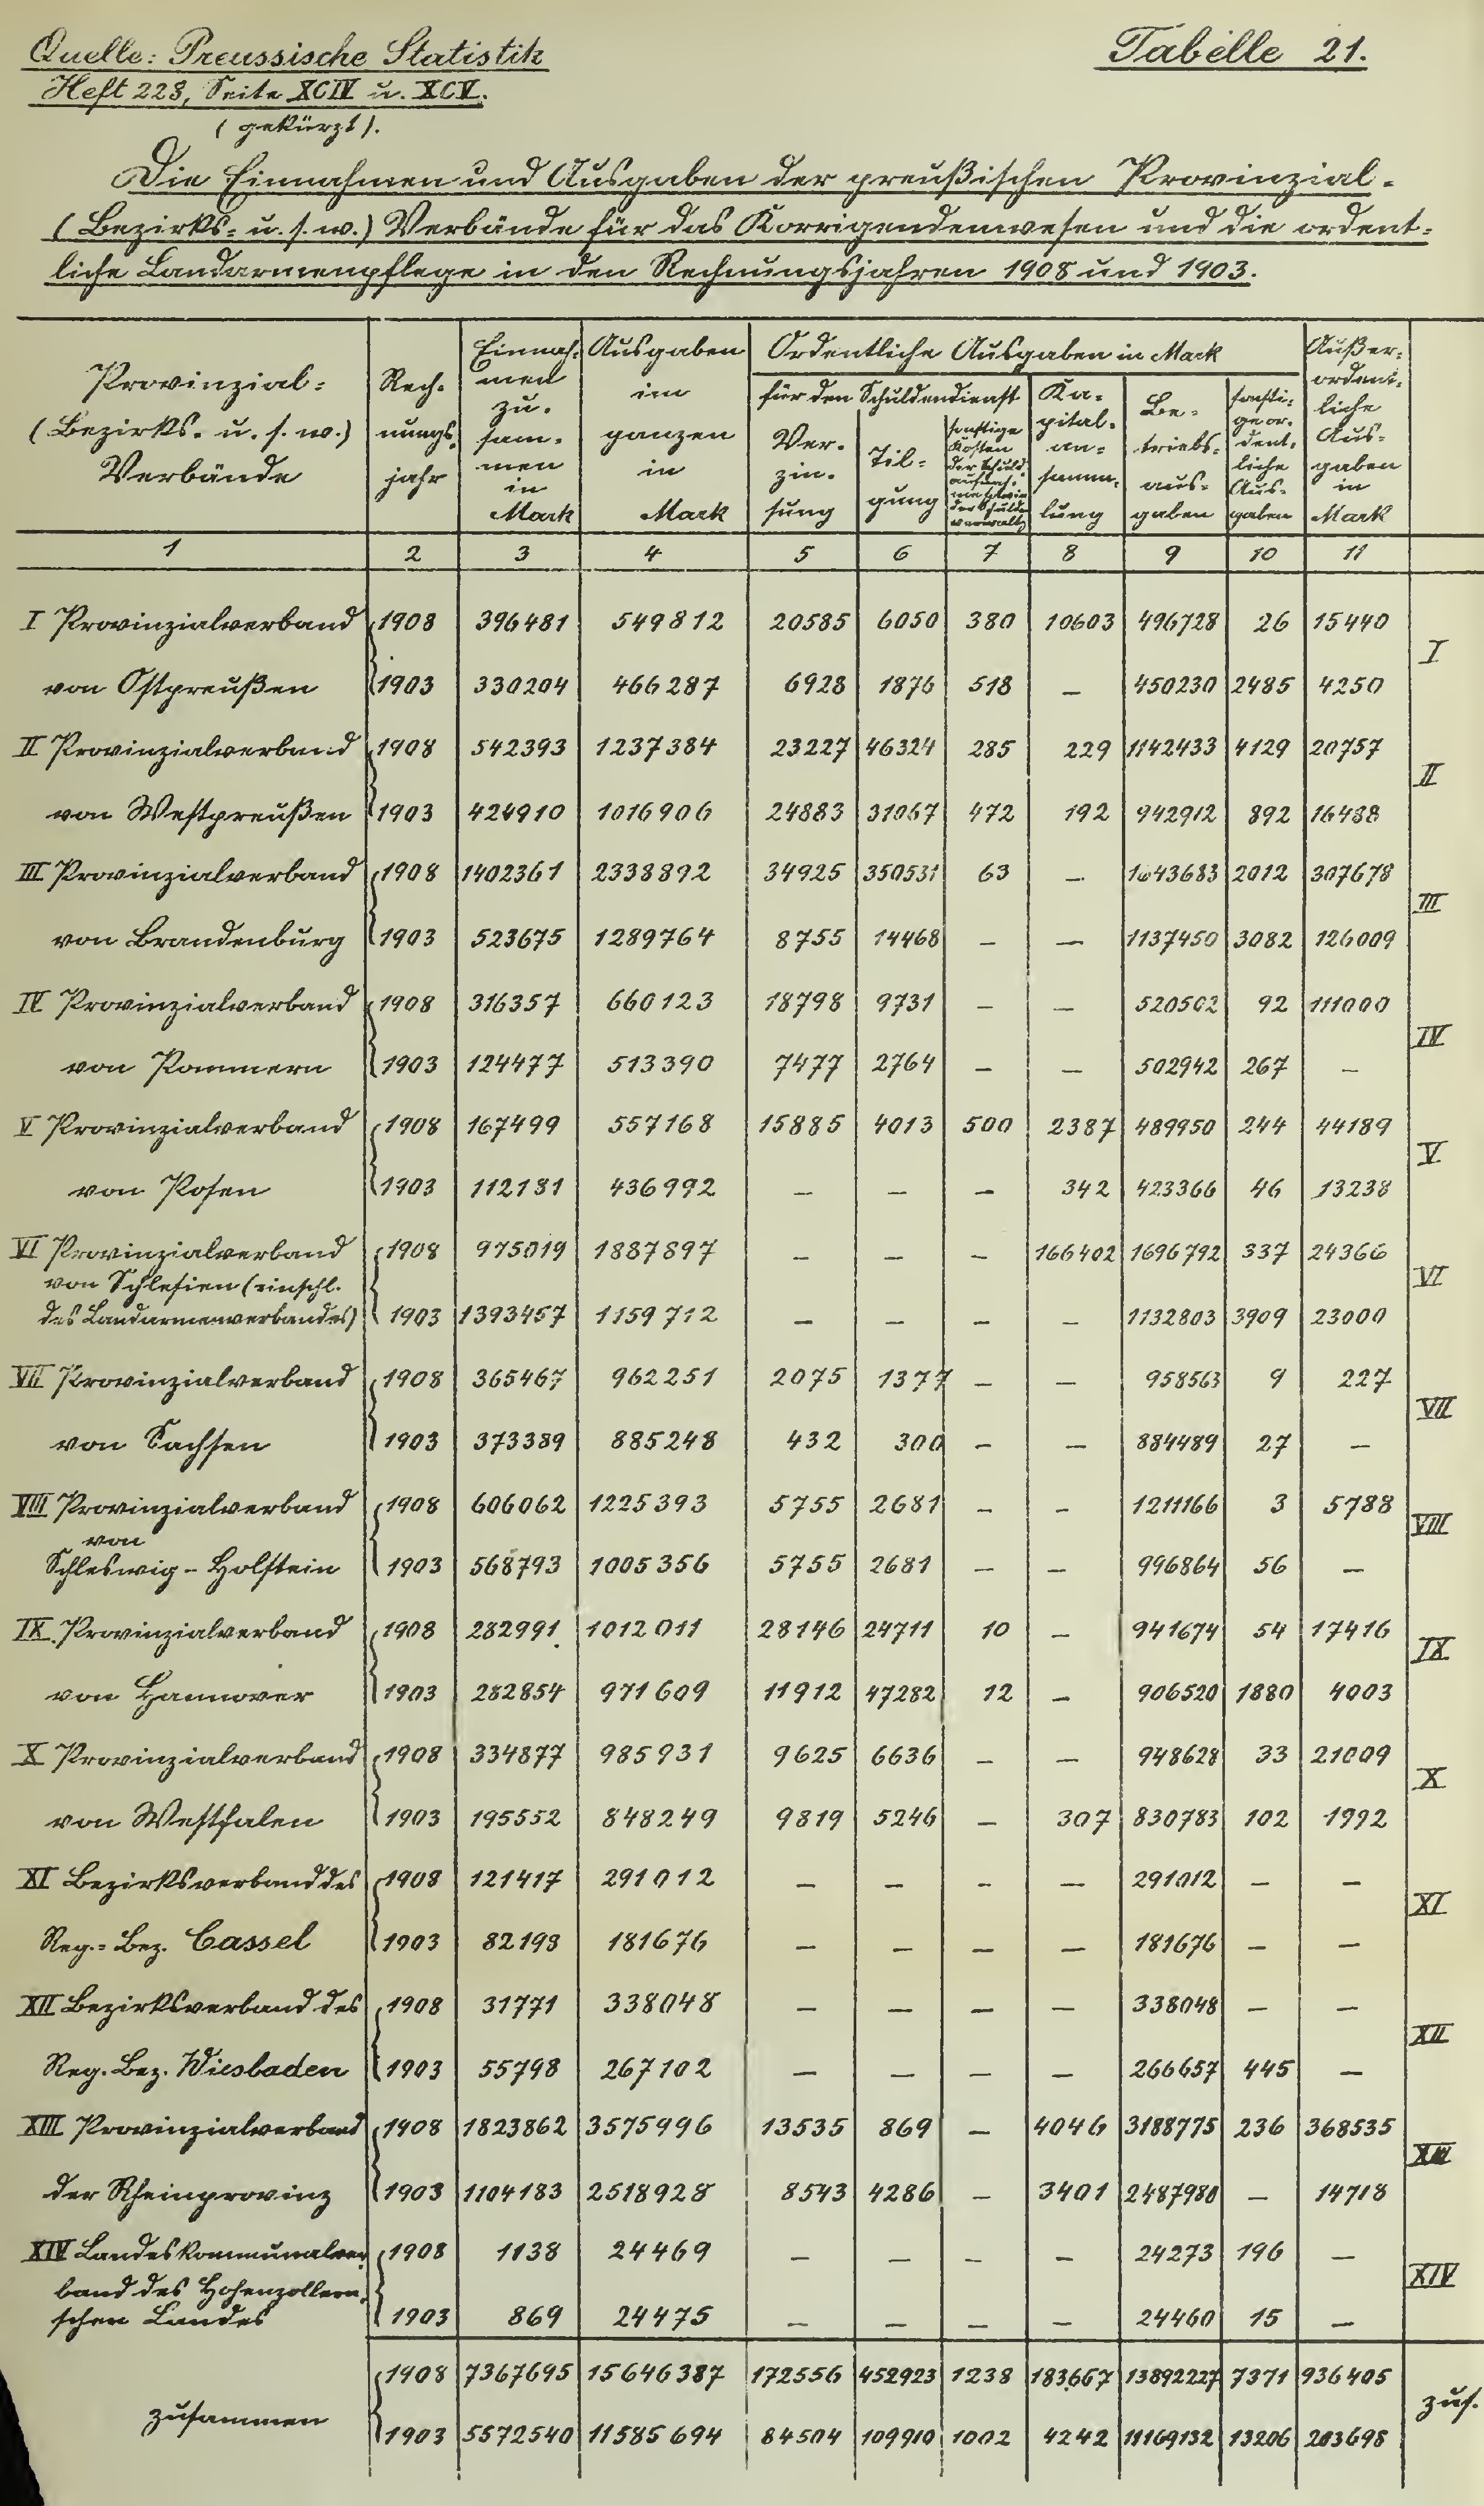 Quelle: Preussische Statistik
Tabelle 21.
Heft 223, Seite XCIV u. XCV.
(gekürzt).
Die Einnahmen und Ausgaben der preußischen Provinzial-
(Bezirks- u. s. w.) Verbände für das Korrigendenwesen und die ordent-
liche Landarmenpflege in den Rechnungsjahren 1908 und 1903.
Provinzial-
(Bezirks- u. s. w.)
Verbände
Rech-
nungs-
jahr
Einnah-
men
zu-
sam-
men
in
Mark
Ausgaben
im
ganzen
in
Mark
Ordentliche Ausgaben in Mark
für den Schuldendienst
Ver-
zin-
sung
Til-
gung
sonstige
Kosten
der Schuld-
Ka-
pital-
an-
samm-
lung
Be-
triebs-
aus-
gaben
sonsti-
ge or-
dent-
liche
Aus-
gaben
Außer-
ordent-
liche
Aus-
gaben
in
Mark
1 2 3 4 5 6 7 8 9 10 11
I Provinzialverband 1908 396481 549812 20585 6050 380 10603 496728 26 15440
I
von Ostpreußen 1903 330204 466287 6928 1876 518 — 450230 2485 4250
II Provinzialverband 1908 542393 1237384 23227 46324 285 229 1142433 4129 20757
II
von Westpreußen 1903 424910 1016906 24883 31067 472 192 942912 892 16488
III Provinzialverband 1908 1402361 2338892 34925 350531 63 — 1643683 2012 307678
III
von Brandenburg 1903 523675 1289764 8755 14468 — — 1137450 3082 126009
IV Provinzialverband 1908 316357 660123 18798 9731 — — 520502 92 111000
IV
von Pommern 1903 124477 513390 7477 2764 — — 502942 267 —
V Provinzialverband 1908 167499 557168 15885 4013 500 2387 489950 244 44189
V
von Posen 1903 112181 436992 — — — 342 423366 46 13238
VI Provinzialverband 1908 975019 1887897 — — — 166402 1696792 337 24366
von Schlesien (einschl.
VI
des Landarmenverbandes) 1903 1393457 1159712 — — — — 1132803 3909 23000
VII Provinzialverband 1908 365467 962251 2075 1377 — — 958563 9 227
VII
von Sachsen 1903 373389 885248 432 300 — — 884489 27 —
VIII Provinzialverband 1908 606062 1225393 5755 2681 — — 1211166 3 5788
VIII
von
Schleswig-Holstein 1903 568793 1005356 5755 2681 — — 996864 56 —
IX. Provinzialverband 1908 282991 1012011 28146 24711 10 — 941674 54 17416
IX
von Hannover 1903 282854 971609 11912 47282 12 — 906520 1880 4003
X Provinzialverband 1908 334877 985931 9625 6636 — — 948628 33 21009
X
von Westfalen 1903 195552 848249 9819 5246 — 307 830783 102 1992
XI Bezirksverband des 1908 121417 291012 — — — — 291012 — —
XI
Reg.-Bez. Cassel 1903 82193 181676 — — — — 181676 — —
XII Bezirksverband des 1908 31771 338048 — — — — 338048 — —
XII
Reg. Bez. Wiesbaden 1903 55798 267102 — — — — 266657 445 —
XIII Provinzialverband 1908 1823862 3575996 13535 869 — 4046 3188775 236 368535
XIII
der Rheinprovinz 1903 1104183 2518928 8543 4286 — 3401 2487980 — 14718
XIV Landeskommunalver- 1908 1138 24469 — — — — 24273 196 —
band des Hohenzollern-
XIV
schen Landes 1903 869 24475 — — — — 24460 15 —
1908 7367695 15646387 172556 452923 1238 183667 13892227 7371 936405
zusammen
zus.
1903 5572540 11585694 84504 109910 1002 4242 11169132 13206 203698